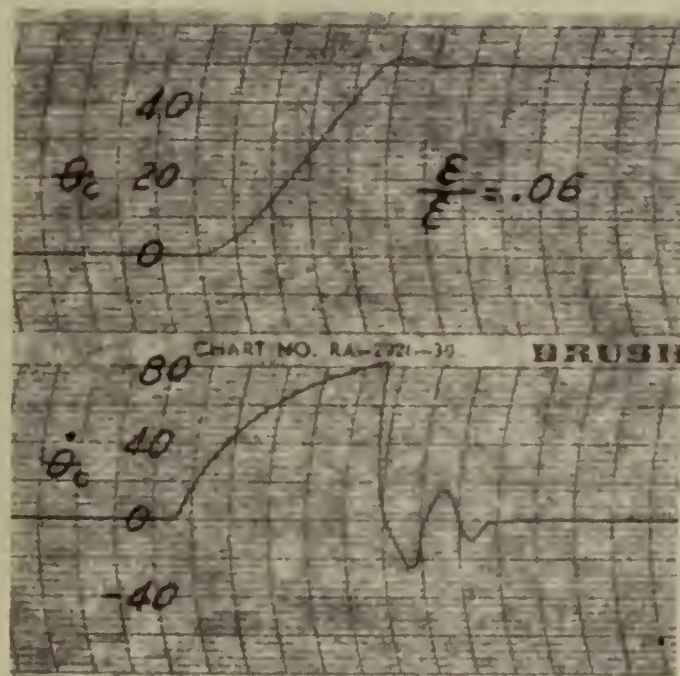 40
θc 20
ε/ε̇ = .06
0
CHART NO. RA-2921-30 BRUSH
80
40
θ̇c
0
-40